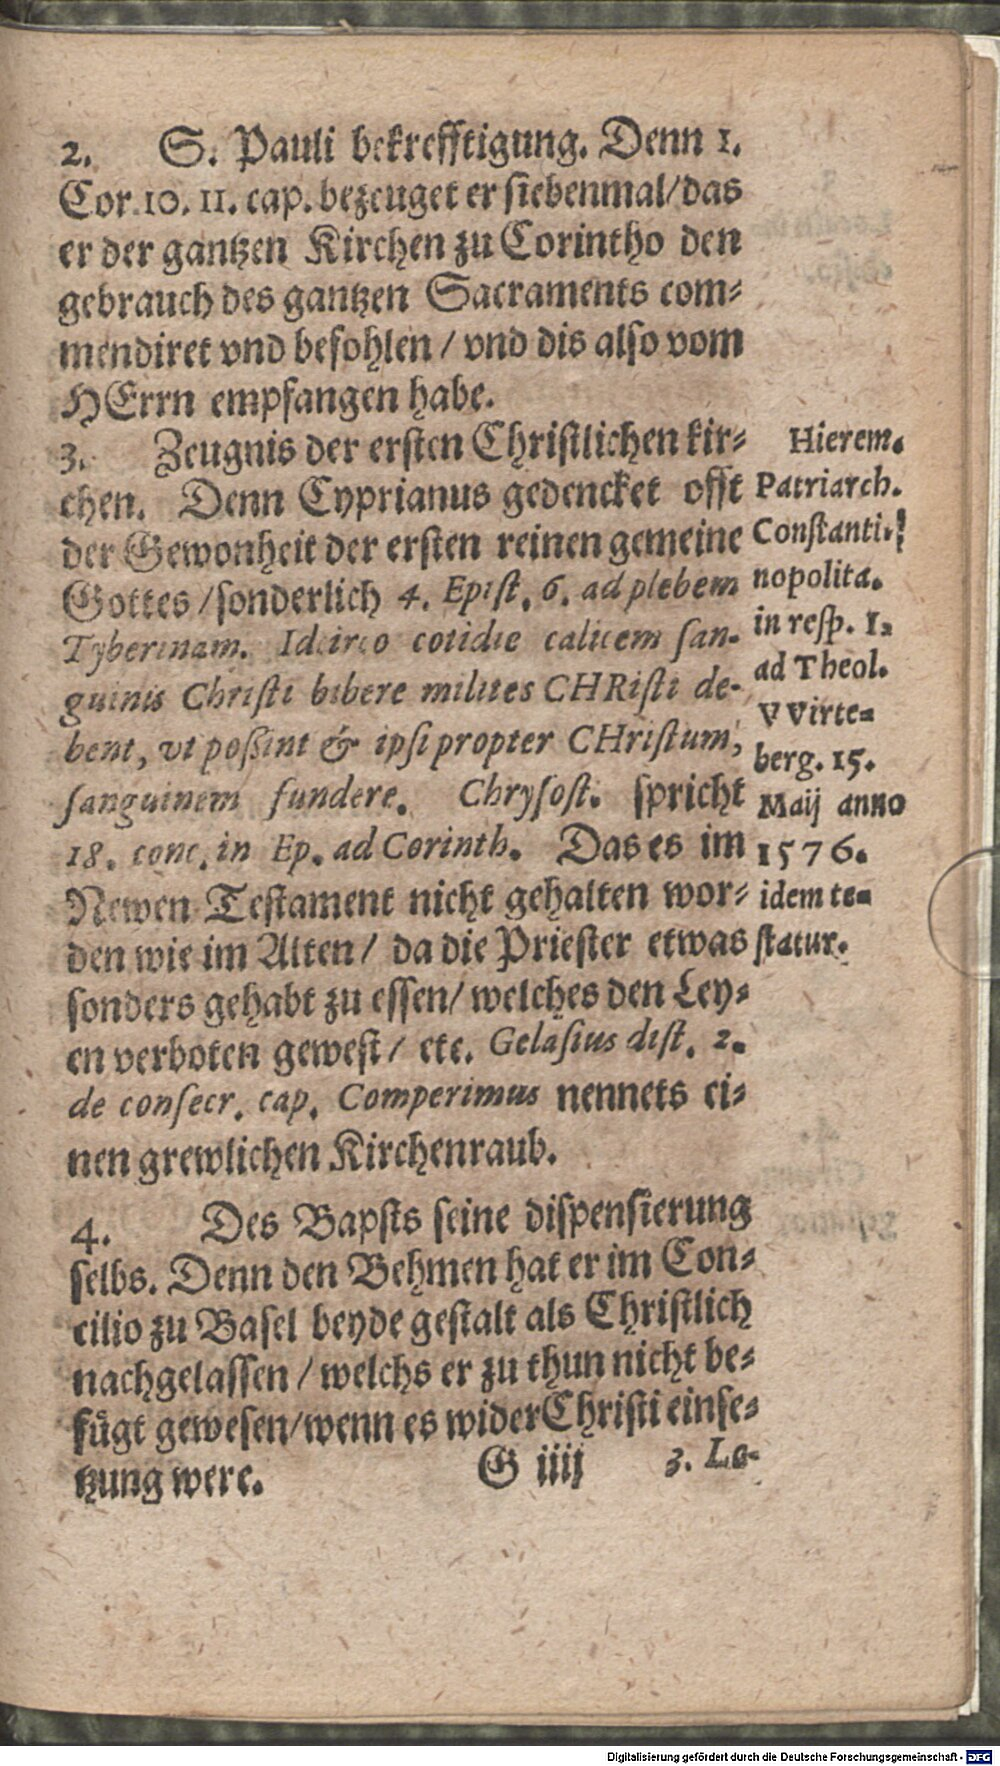 2. S. Pauli bekrefftigung. Denn 1.
Cor. 10. 11. cap. bezeuget er siebenmal/ das
er der gantzen Kirchen zu Corintho den
gebrauch des gantzen Sacraments com-
mendiret vnd befohlen / vnd dis also vom
HErrn empfangen habe.
3. Zeugnis der ersten Christlichen kir-
chen. Denn Cyprianus gedencket offt
der Gewonheit der ersten reinen gemeine
Gottes / sonderlich 4. Epist. 6. ad plebem
Tyberinam. Idcirco cotidie calicem san-
guinis Christi bibere milites CHRisti de-
bent, vt poßint & ipsi propter CHristum,
sanguinem fundere. Chrysost. spricht
18. conc. in Ep. ad Corinth. Das es im
Newen Testament nicht gehalten wor-
den wie im Alten / da die Priester etwas
sonders gehabt zu essen/ welches den Ley-
en verboten gewest / etc. Gelasius dist. 2.
de consecr. cap. Comperimus nennets ei-
nen grewlichen Kirchenraub.
4. Des Bapsts seine dispensierung
selbs. Denn den Behmen hat er im Con-
cilio zu Basel beyde gestalt als Christlich
nachgelassen / welchs er zu thun nicht be-
fügt gewesen/ wenn es wider Christi einse-
tzung were.
G iiij 3. Le-
Hierem.
Patriarch.
Constanti-
nopolita.
in resp. 1.
ad Theol.
VVirte-
berg. 15.
Maij anno
1576.
idem te-
statur.
Digitalisierung gefördert durch die Deutsche Forschungsgemeinschaft - DFG